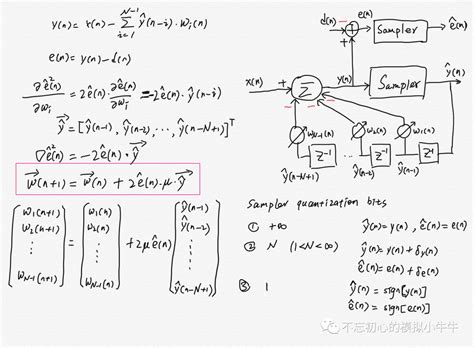 y(n) = x(n) − Σ_{i=1}^{N−1} ŷ(n−i)·w_i(n)
e(n) = y(n) − d(n)
∂ê²(n)/∂w_i = 2ê(n)·∂ê(n)/∂w_i = −2ê(n)·ŷ(n−i)
ŷ⃗ = [ŷ(n−1), ŷ(n−2), ..., ŷ(n−N+1)]^T
∇ê²(n) = −2ê(n)·ŷ⃗
w⃗(n+1) = w⃗(n) + 2ê(n)·μ·ŷ⃗
[w₁(n+1) w₂(n+1) ⋮ w_{N−1}(n+1)] = [w₁(n) w₂(n) ⋮ w_{N−1}(n)] + 2μê(n) [ŷ(n−1) ŷ(n−2) ⋮ ŷ(n−N+1)]
d(n) − + e(n) Sampler ê(n)
x(n) + Σ y(n) Sampler ŷ(n)
− − −
w_{N−1}(n) w₂(n) w₁(n)
Z⁻¹ ... Z⁻¹ Z⁻¹
ŷ(n−N+1) ŷ(n−2) ŷ(n−1)
Sampler quantization bits
① +∞ ŷ(n) = y(n), ê(n) = e(n)
② N (1<N<∞) ŷ(n) = y(n) + δy(n)
ê(n) = e(n) + δe(n)
③ 1 ŷ(n) = sign[y(n)]
ê(n) = sign[e(n)]
不忘初心的模拟小牛牛